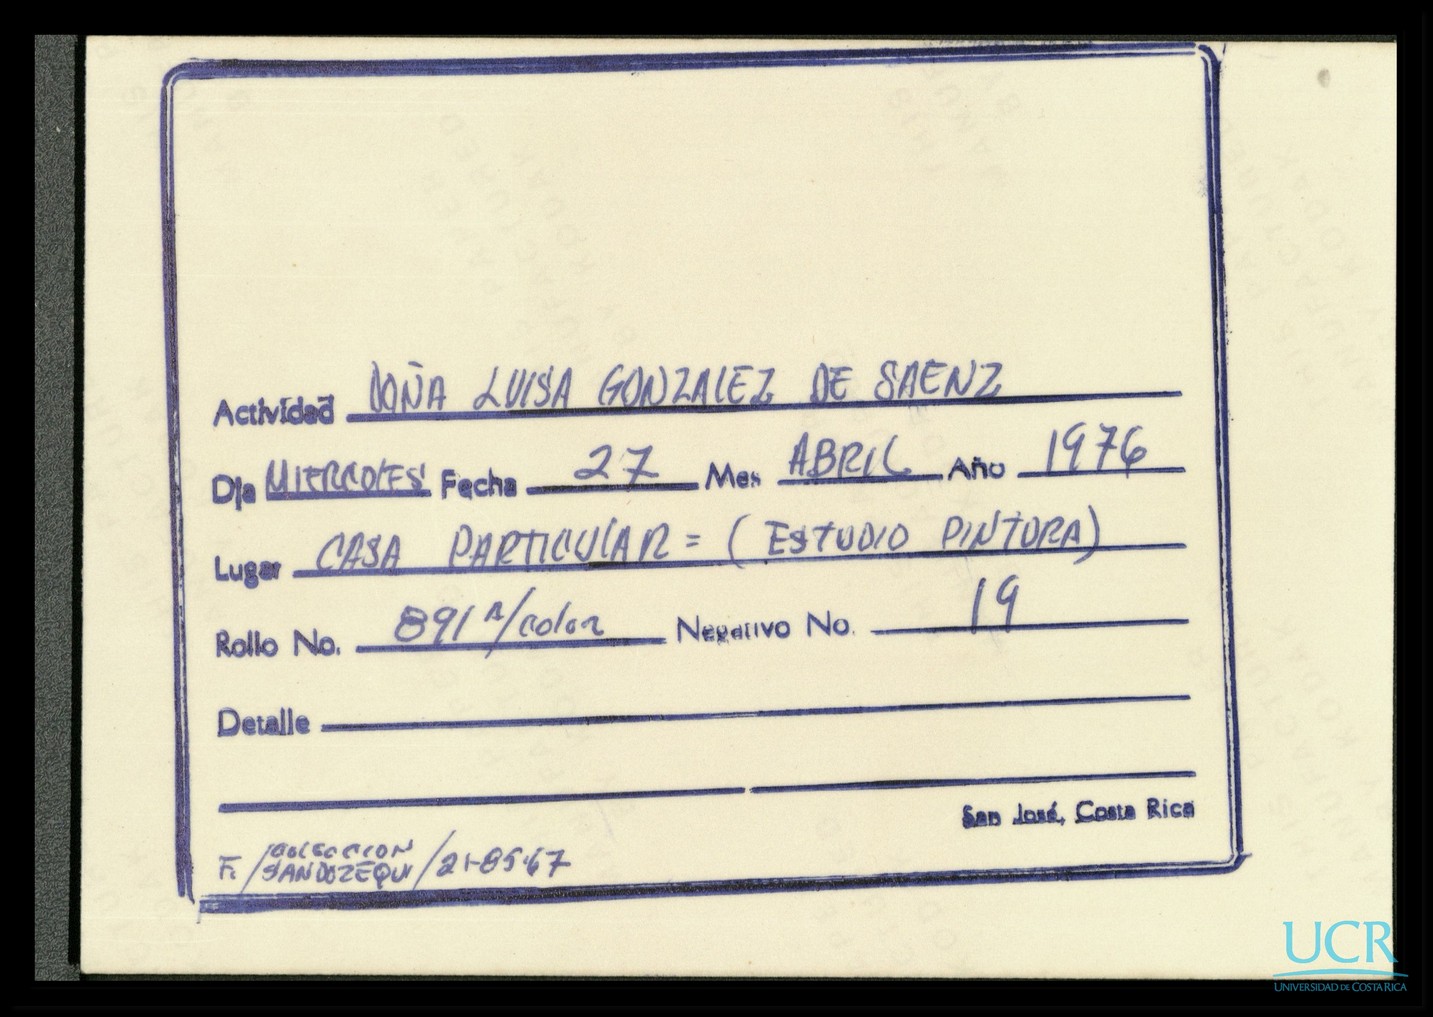 Actividad DOÑA LUISA GONZALEZ DE SAENZ
Día MIERCOLES Fecha 27 Mes ABRIL Año 1976
Lugar CASA PARTICULAR = (ESTUDIO PINTORA)
Rollo No. 891 A/color Negativo No. 19
Detalle
San José, Costa Rica
F. /COLECCION SANDOZEQUI /21-85-67
UCR
UNIVERSIDAD DE COSTA RICA